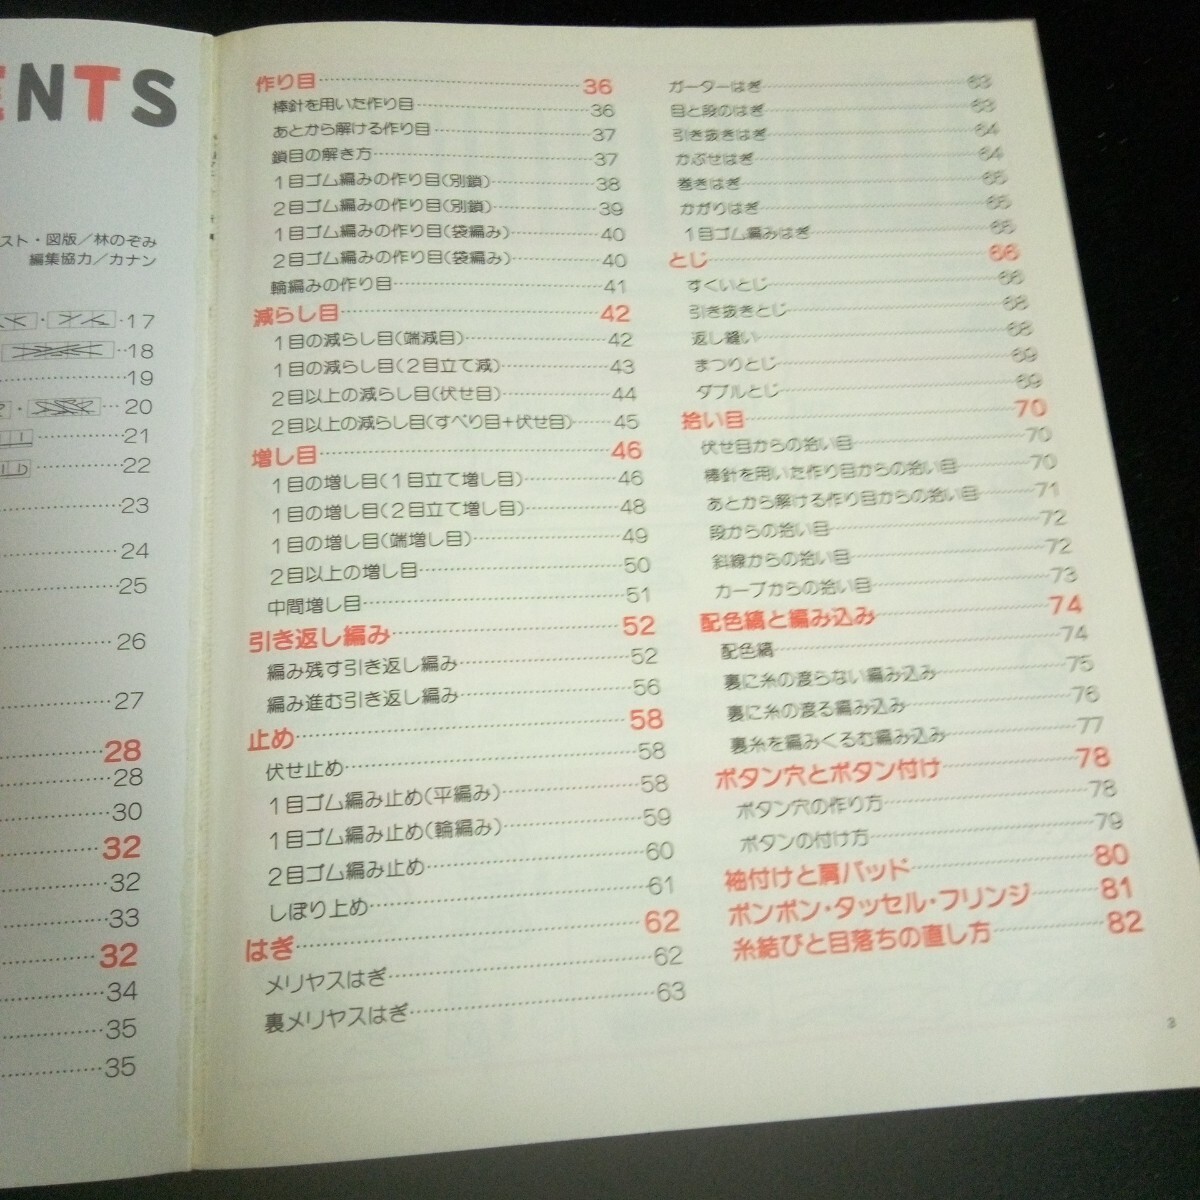 ENTS
スト・図版／林のぞみ
編集協力／カナン
17
18
19
20
21
22
23
24
25
26
27
28
28
30
32
32
33
32
34
35
35
作り目 36
棒針を用いた作り目 36
あとから解ける作り目 37
鎖目の解き方 37
1目ゴム編みの作り目(別鎖) 38
2目ゴム編みの作り目(別鎖) 39
1目ゴム編みの作り目(袋編み) 40
2目ゴム編みの作り目(袋編み) 40
輪編みの作り目 41
減らし目 42
1目の減らし目(端減目) 42
1目の減らし目(2目立て減) 43
2目以上の減らし目(伏せ目) 44
2目以上の減らし目(すべり目+伏せ目) 45
増し目 46
1目の増し目(1目立て増し目) 46
1目の増し目(2目立て増し目) 48
1目の増し目(端増し目) 49
2目以上の増し目 50
中間増し目 51
引き返し編み 52
編み残す引き返し編み 52
編み進む引き返し編み 56
止め 58
伏せ止め 58
1目ゴム編み止め(平編み) 58
1目ゴム編み止め(輪編み) 59
2目ゴム編み止め 60
しぼり止め 61
はぎ 62
メリヤスはぎ 62
裏メリヤスはぎ 63
ガーターはぎ 63
目と段のはぎ 63
引き抜きはぎ 64
かぶせはぎ 64
巻きはぎ 65
かがりはぎ 65
1目ゴム編みはぎ 65
とじ 66
すくいとじ 66
引き抜きとじ 68
返し縫い 68
まつりとじ 69
ダブルとじ 69
拾い目 70
伏せ目からの拾い目 70
棒針を用いた作り目からの拾い目 70
あとから解ける作り目からの拾い目 71
段からの拾い目 72
斜線からの拾い目 72
カーブからの拾い目 73
配色縞と編み込み 74
配色縞 74
裏に糸の渡らない編み込み 75
裏に糸の渡る編み込み 76
裏糸を編みくるむ編み込み 77
ボタン穴とボタン付け 78
ボタン穴の作り方 78
ボタンの付け方 79
袖付けと肩パッド 80
ポンポン・タッセル・フリンジ 81
糸結びと目落ちの直し方 82
3